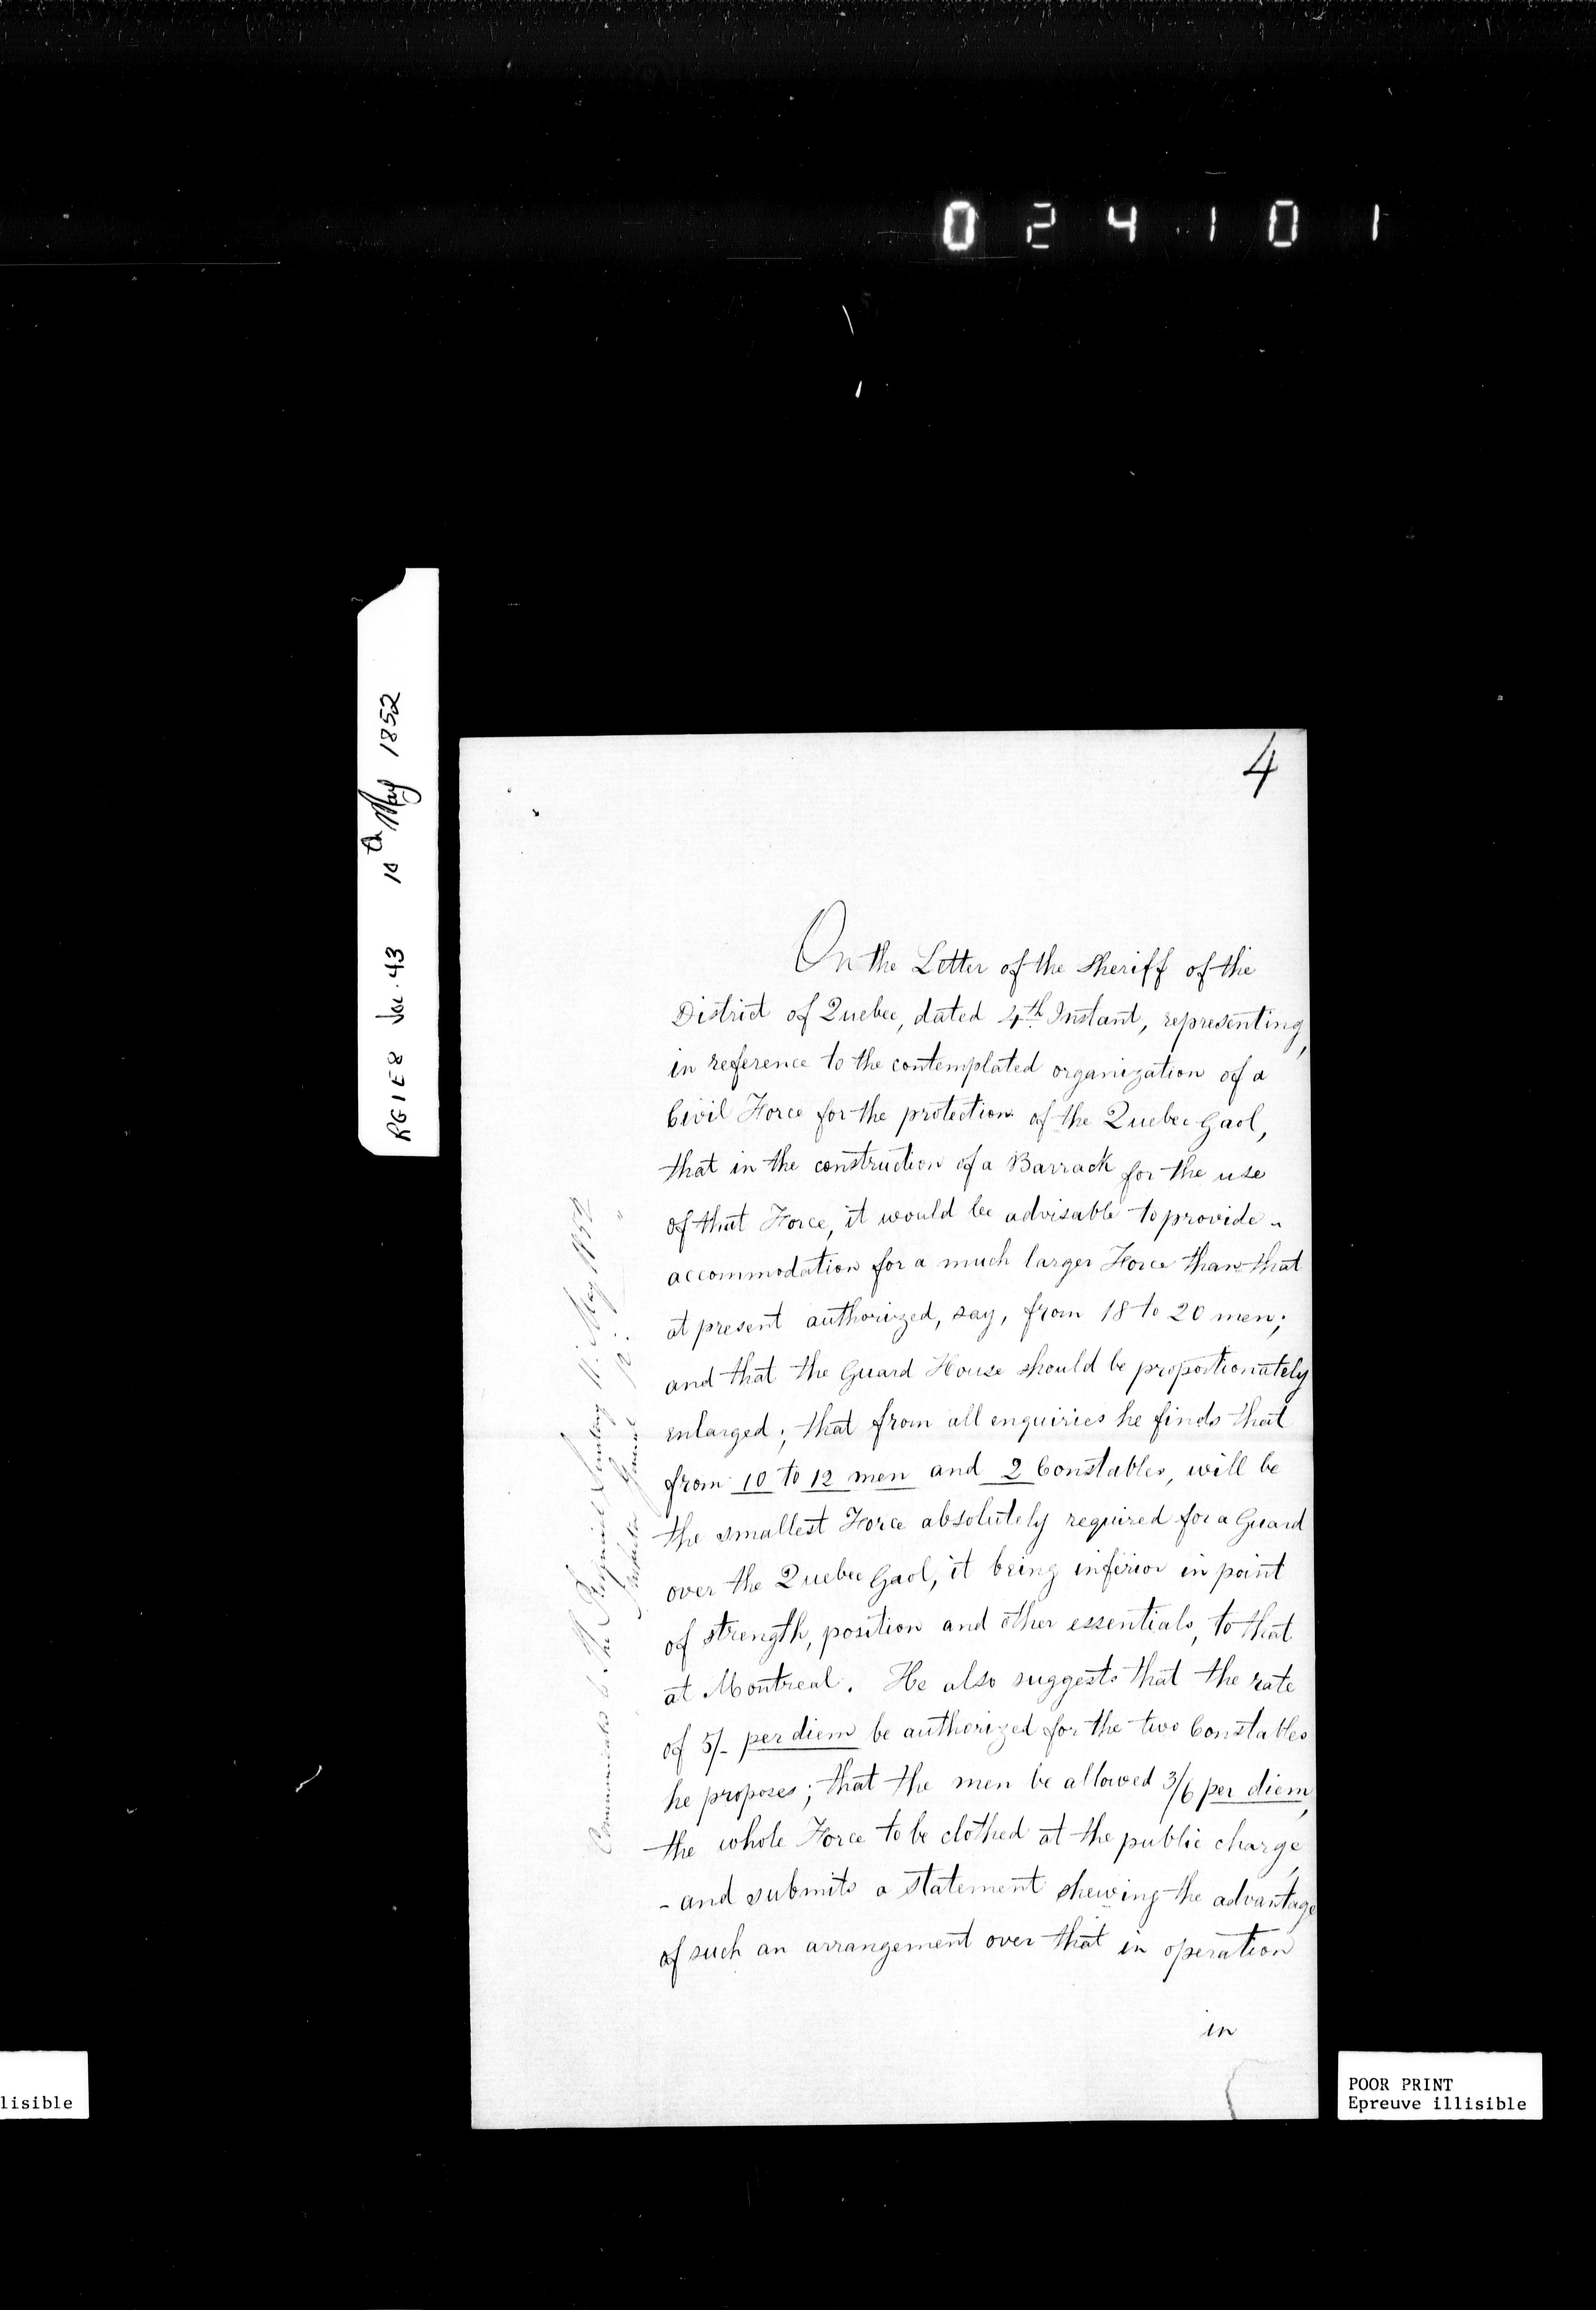 024101
RG1E8 Vol. 43 10th May 1852
4
On the Letter of the Sheriff of the
District of Quebec, dated 4th Instant, representing,
in reference to the contemplated organization of a
Civil Force for the protection of the Quebec Gaol,
that in the construction of a Barrack for the use
of that Force, it would be advisable to provide -
accommodation for a much larger Force than that
at present authorized, say, from 18 to 20 men;
and that the Guard House should be proportionately
enlarged; that from all enquiries he finds that
from 10 to 12 men and 2 Constables, will be
the smallest Force absolutely required for a Guard
over the Quebec Gaol, it being inferior in point
of strength, position and other essentials, to that
at Montreal. He also suggests that the rate
of 5/- per diem be authorized for the two Constables
he proposes; that the men be allowed 3/6 per diem,
the whole Force to be clothed at the public charge,
- and submits a statement shewing the advantage
of such an arrangement over that in operation
in
Communicated to the Provincial Secretary 11. May 1852
Inspector General do. "
lisible
POOR PRINT
Epreuve illisible